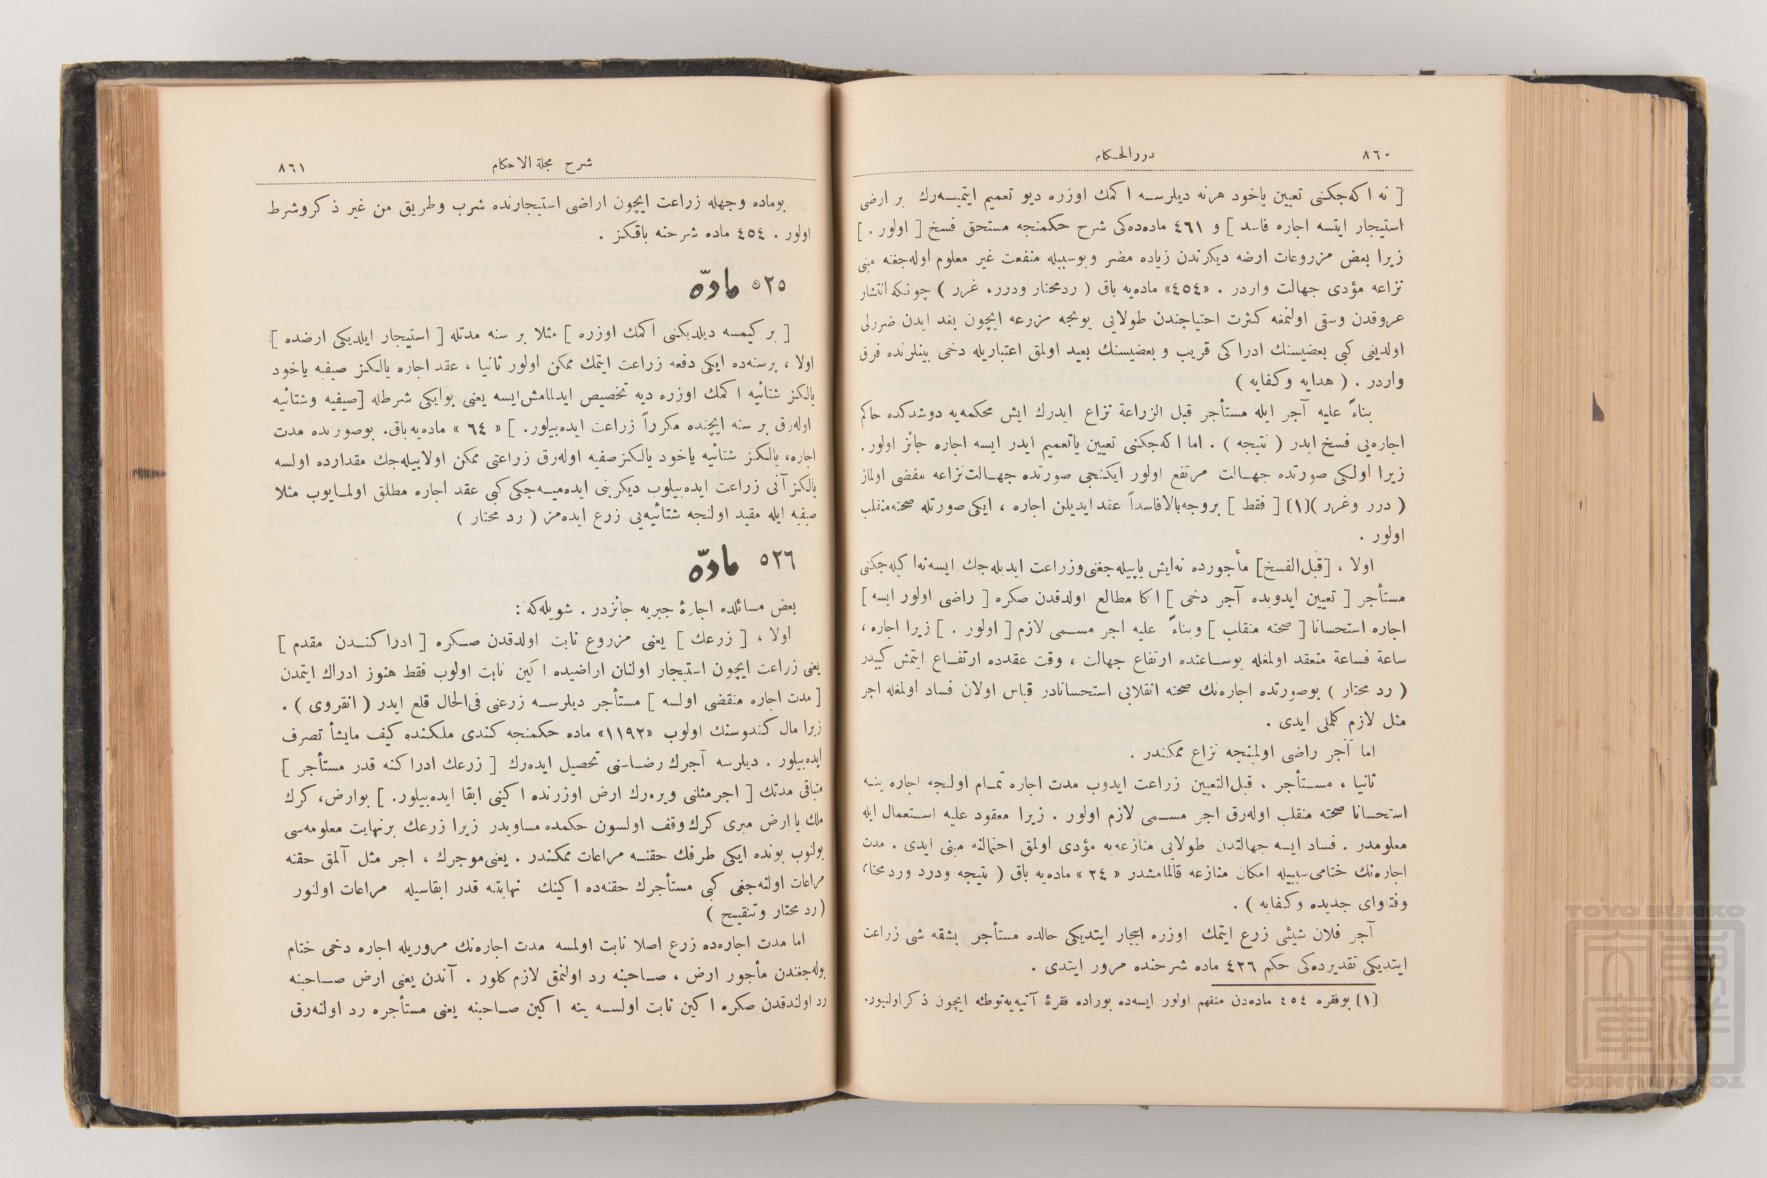 ٨٦٠
دررالحكام
[ نه اكه‌جكنى تعيين ياخود هرنه ديلرسه اكمك اوزره ديو تعميم ايتميه‌رك بر ارضى
استيجار ايتسه اجاره فاسد ] و ٤٦١ ماده‌ده‌كى شرح حكمنجه مستحق فسخ [ اولور . ]
زيرا بعض مزروعات ارضه ديكرندن زياده مضر وبوسببله منفعت غير معلوم اوله‌جغنه مبنى
نزاعه مؤدى جهالت واردر . «٤٥٤» ماده‌يه باق ( ردمحتار ودرر، غرر ) چونكه انتشار
عروقدن وسقى اولنمغه كثرت احتياجندن طولايى يونجه مزرعه ايچون بغد ايدن ضررلى
اولديغى كبى بعضيسنك ادراكى قريب و بعضيسنك بعيد اولمق اعتباريله دخى بينلرنده فرق
واردر . ( هدايه وكفايه )
بناءً عليه آجر ايله مستأجر قبل الزراعة نزاع ايدرك ايش محكمه‌يه دوشدكده حاكم
اجاره‌يى فسخ ايدر ( نتيجه ) . اما اكه‌جكنى تعيين ياتعميم ايدر ايسه اجاره جائز اولور .
زيرا اولكى صورتده جهالت مرتفع اولور ايكنجى صورتده جهالت نزاعه مفضى اولماز
( درر وغرر )(١) [ فقط ] بروجه‌بالافاسداً عقد ايديلن اجاره ، ايكى صورتله صحته‌منقلب
اولور .
اولا ، [قبل‌الفسخ] مأجورده نه‌ايش ياپيله‌جغنى وزراعت ايديله‌جك ايسه‌نه‌اكيله‌جكنى
مستأجر [ تعيين ايدوبده آجر دخى ] اكا مطالع اولدقدن صكره [ راضى اولور ايسه ]
اجاره استحسانا [ صحته منقلب ] وبناءً عليه اجر مسمى لازم [ اولور . ] زيرا اجاره ،
ساعة فساعة منعقد اولمغله بوساعتده ارتفاع جهالت ، وقت عقدده ارتفاع ايتمش كبيدر
( رد محتار ) بوصورتده اجاره‌نك صحته انقلابى استحسانادر قياس اولان فساد اولمغله اجر
مثل لازم كلملى ايدى .
اما آجر راضى اولمينجه نزاع ممكندر .
ثانيا ، مستأجر ، قبل‌التعيين زراعت ايدوب مدت اجاره تمام اولنجه اجاره ينه
استحسانا صحته منقلب اوله‌رق اجر مسمى لازم اولور . زيرا معقود عليه استعمال ايله
معلومدر . فساد ايسه جهالتدن طولايى منازعه‌يه مؤدى اولمق احتمالنه مبنى ايدى . مدت
اجاره‌نك ختامى سببيله امكان منازعه قالمامشدر « ٢٤ » ماده‌يه باق ( نتيجه ودرد وردمحتار
وفتاواى جديده وكفايه ) .
آجر فلان شيئى زرع ايتمك اوزره ايجار ايتديكى حالده مستأجر بشقه شى زراعت
ايتديكى تقديرده‌كى حكم ٤٢٦ ماده شرحنده مرور ايتدى .
(١) بوفقره ٤٥٤ ماده‌دن منفهم اولور ايسه‌ده بوراده فقرهٔ آتيه‌يه‌توطئه ايچون ذكراولنيور.
شرح مجلة الاحكام
٨٦١
بوماده وجهله زراعت ايچون اراضى استيجارنده شرب وطريق من غير ذكروشرط
اولور . ٤٥٤ ماده شرحنه باقكز .
٥٢٥ مادّه
[ بر كيمسه ديلديكنى اكمك اوزره ] مثلا بر سنه مدتله [ استيجار ايلديكى ارضده ]
اولا ، برسنه‌ده ايكى دفعه زراعت ايتمك ممكن اولور ثانيا ، عقد اجاره يالكز صيفيه ياخود
يالكز شتائيه اكمك اوزره ديه تخصيص ايدلمامش‌ايسه يعنى بوايكى شرطله [صيفيه وشتائيه
اوله‌رق بر سنه ايچنده مكرراً زراعت ايده‌بيلور. ] « ٦٤ » ماده‌يه‌باق. بوصورنده مدت
اجاره، يالكز شتائيه ياخود يالكزصيفيه اوله‌رق زراعتى ممكن اولابيله‌جك مقدارده اولسه
يالكز آنى زراعت ايده‌بيلوب ديكرينى ايده‌ميه‌جكى كبى عقد اجاره مطلق اولمايوب مثلا
صيفيه ايله مقيد اولنجه شتائيه‌يى زرع ايده‌مز ( رد محتار )
٥٢٦ مادّه
بعض مسائلده اجارهٔ جبريه جائزدر . شويله‌كه :
اولا ، [ زرعك ] يعنى مزروع نابت اولدقدن صكره [ ادراكندن مقدم ]
يعنى زراعت ايچون استيجار اولنان اراضيده اكين نابت اولوب فقط هنوز ادراك ايتمدن
[ مدت اجاره منقضى اولسه ] مستأجر ديلرسه زرعنى فى‌الحال قلع ايدر ( انقروى ) .
زيرا مال كندوسنك اولوب «١١٩٢» ماده حكمنجه كندى ملكنده كيف مايشأ تصرف
ايده‌بيلور . ديلرسه آجرك رضاسنى تحصيل ايده‌رك [ زرعك ادراكنه قدر مستأجر ]
متباقى مدتك [ اجرمثلنى ويره‌رك ارض اوزرنده اكينى ابقا ايده‌بيلور. ] بوارض، كرك
ملك يا ارض ميرى كرك وقف اولسون حكمده مساويدر زيرا زرعك برنهايت معلومه‌سى
بولنوب بونده ايكى طرفك حقنه مراعات ممكندر . يعنى‌موجرك ، اجر مثل آلمق حقنه
مراعات اولنه‌جغى كبى مستأجرك حقنه‌ده اكينك نهايتنه قدر ابقاسيله مراعات اولنور
(رد محتار وتنقيح )
اما مدت اجاره‌ده زرع اصلا نابت اولمسه مدت اجاره‌نك مروريله اجاره دخى ختام
بوله‌جغندن مأجور ارض ، صاحبنه رد اولنمق لازم كلور . آندن يعنى ارض صاحبنه
رد اولندقدن صكره اكين نابت اولسه ينه اكين صاحبنه يعنى مستأجره رد اولنه‌رق
TOYO BUNKO
東洋文庫
TOYO BUNKO